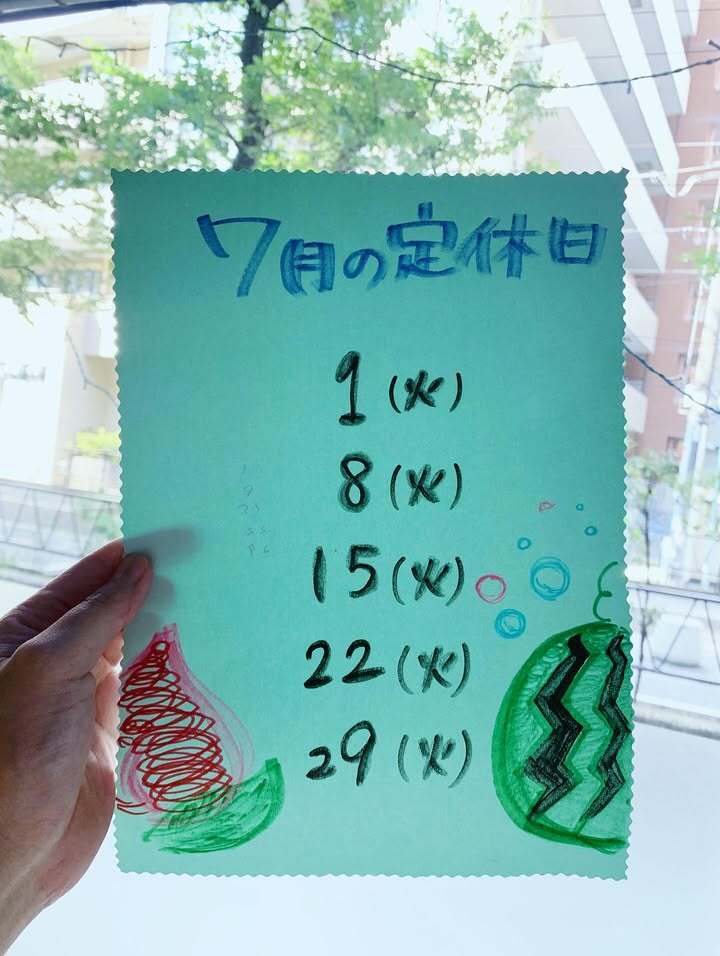 7月の定休日
1(火)
8(火)
15(火)
22(火)
29(火)